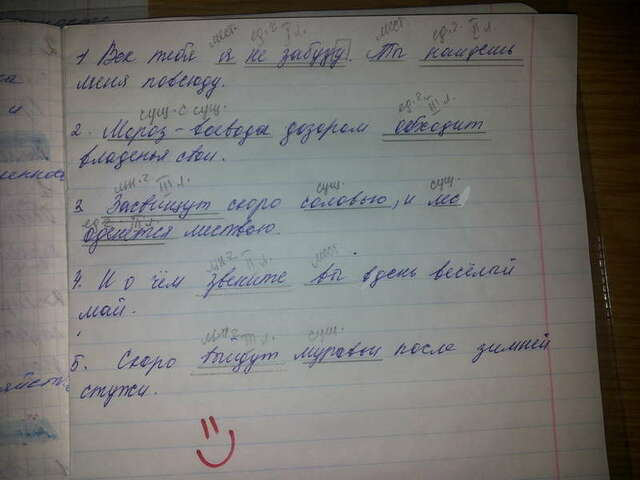 мест. ед.ч. I л. мест. ед.ч. II л.
1 Век тебя я не забуду. Ты найдешь
меня повсюду.
сущ. с сущ. ед.ч. III л.
2. Мороз-воевода дозором обходит
владенья свои.
мн.ч III л. сущ. сущ.
3. Засвищут скоро соловьи, и лес
ед.ч. III л.
оденется листвою.
мн.ч. II л. мест.
4. И о чём звените вы в день весёлый
май.
мн.ч III л. сущ.
5. Скоро выйдут муравьи после зимней
стужи.